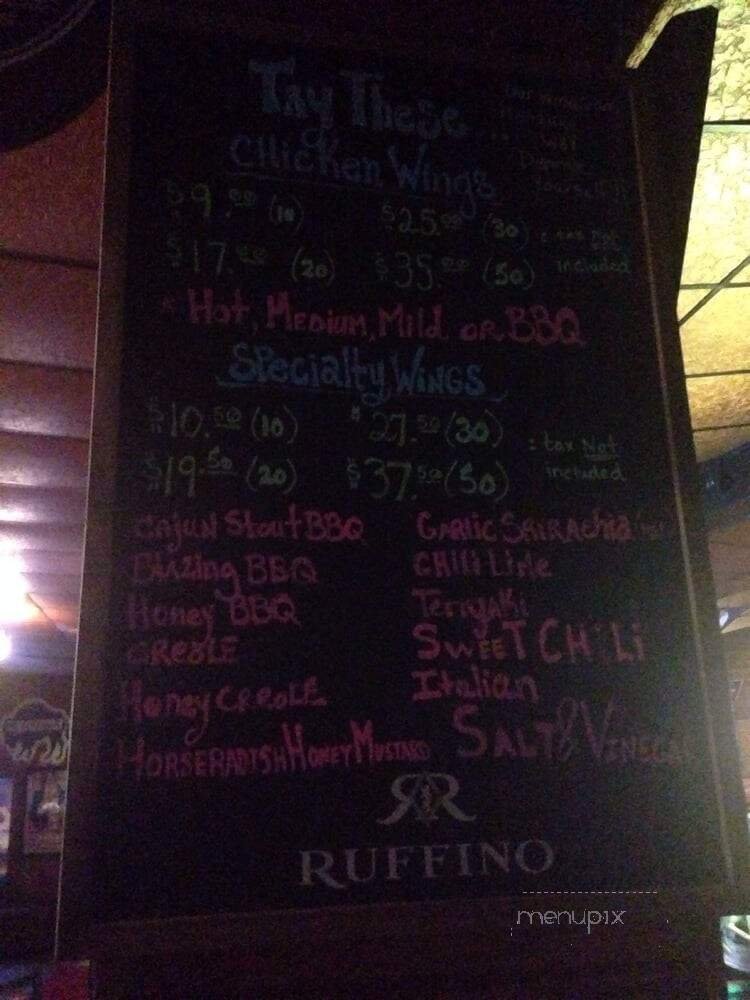 Try These
Chicken Wings
$9.00 (10) $25.00 (30) : tax Not
$17.00 (20) $35.00 (50) included
* Hot, Medium, Mild or BBQ
Specialty Wings
$10.50 (10) $27.50 (30) : tax Not
$19.50 (20) $37.50 (50) included
Cajun Stout BBQ Garlic Sriracha
Blazing BBQ Chili Lime
Honey BBQ Teriyaki
Creole Sweet Chili
Honey Creole Italian
Horseradish Honey Mustard Salt & Vinegar
RUFFINO
menupix